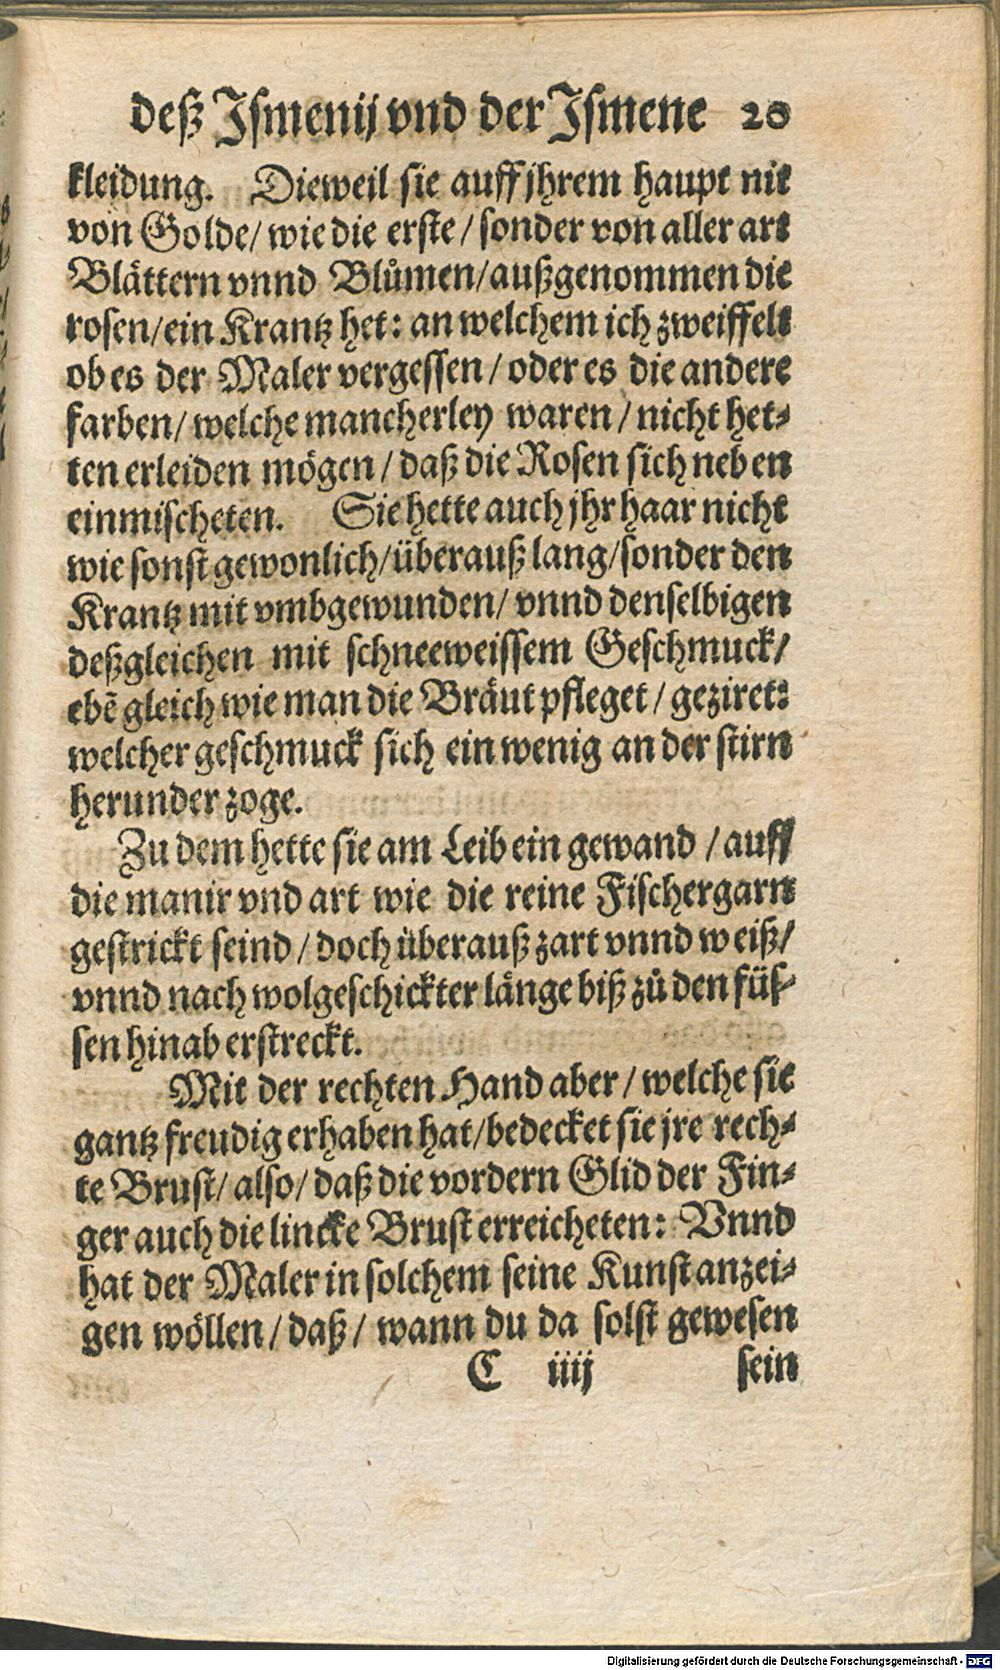 deß Ismenij vnd der Ismene 20
kleidung. Dieweil sie auff jhrem haupt nit
von Golde/ wie die erste/ sonder von aller art
Blättern vnnd Blůmen/außgenommen die
rosen/ein Krantz het: an welchem ich zweiffelt
ob es der Maler vergessen/ oder es die andere
farben/ welche mancherley waren/ nicht het⸗
ten erleiden mögen/ daß die Rosen sich neben
einmischeten. Sie hette auch jhr haar nicht
wie sonst gewonlich/überauß lang/sonder den
Krantz mit vmbgewunden/ vnnd denselbigen
deßgleichen mit schneeweissem Geschmuck/
ebē gleich wie man die Bräut pfleget/ geziret:
welcher geschmuck sich ein wenig an der stirn
herunder zoge.
Zu dem hette sie am Leib ein gewand /auff
die manir vnd art wie die reine Fischergarn
gestrickt seind/ doch überauß zart vnnd weiß/
vnnd nach wolgeschickter länge biß zů den füs⸗
sen hinab erstreckt.
Mit der rechten Hand aber/ welche sie
gantz freudig erhaben hat/bedecket sie jre rech⸗
te Brust/ also/ daß die vordern Glid der Fin⸗
ger auch die lincke Brust erreicheten: Vnnd
hat der Maler in solchem seine Kunst anzei⸗
gen wöllen/ daß/ wann du da solst gewesen
C iiij sein
Digitalisierung gefördert durch die Deutsche Forschungsgemeinschaft - DFG